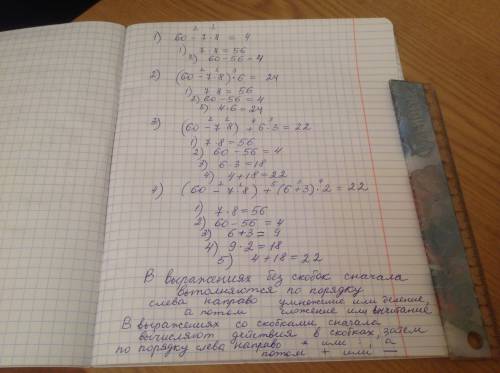 1) 60 - 7 · 8 = 4
1) 7 · 8 = 56
2) 60 - 56 = 4
2) (60 - 7 · 8) · 6 = 24
1) 7 · 8 = 56
2) 60 - 56 = 4
3) 4 · 6 = 24
3) (60 - 7 · 8) + 6 · 3 = 22
1) 7 · 8 = 56
2) 60 - 56 = 4
3) 6 · 3 = 18
4) 4 + 18 = 22
4) (60 - 7 · 8) + (6 + 3) · 2 = 22
1) 7 · 8 = 56
2) 60 - 56 = 4
3) 6 + 3 = 9
4) 9 · 2 = 18
5) 4 + 18 = 22
В выражениях без скобок сначала
выполняются по порядку
слева направо умножение или деление,
а потом сложение или вычитание
В выражениях со скобками сначала
вычисляют действия в скобках, затем
по порядку слева направо · или :, а
потом + или —